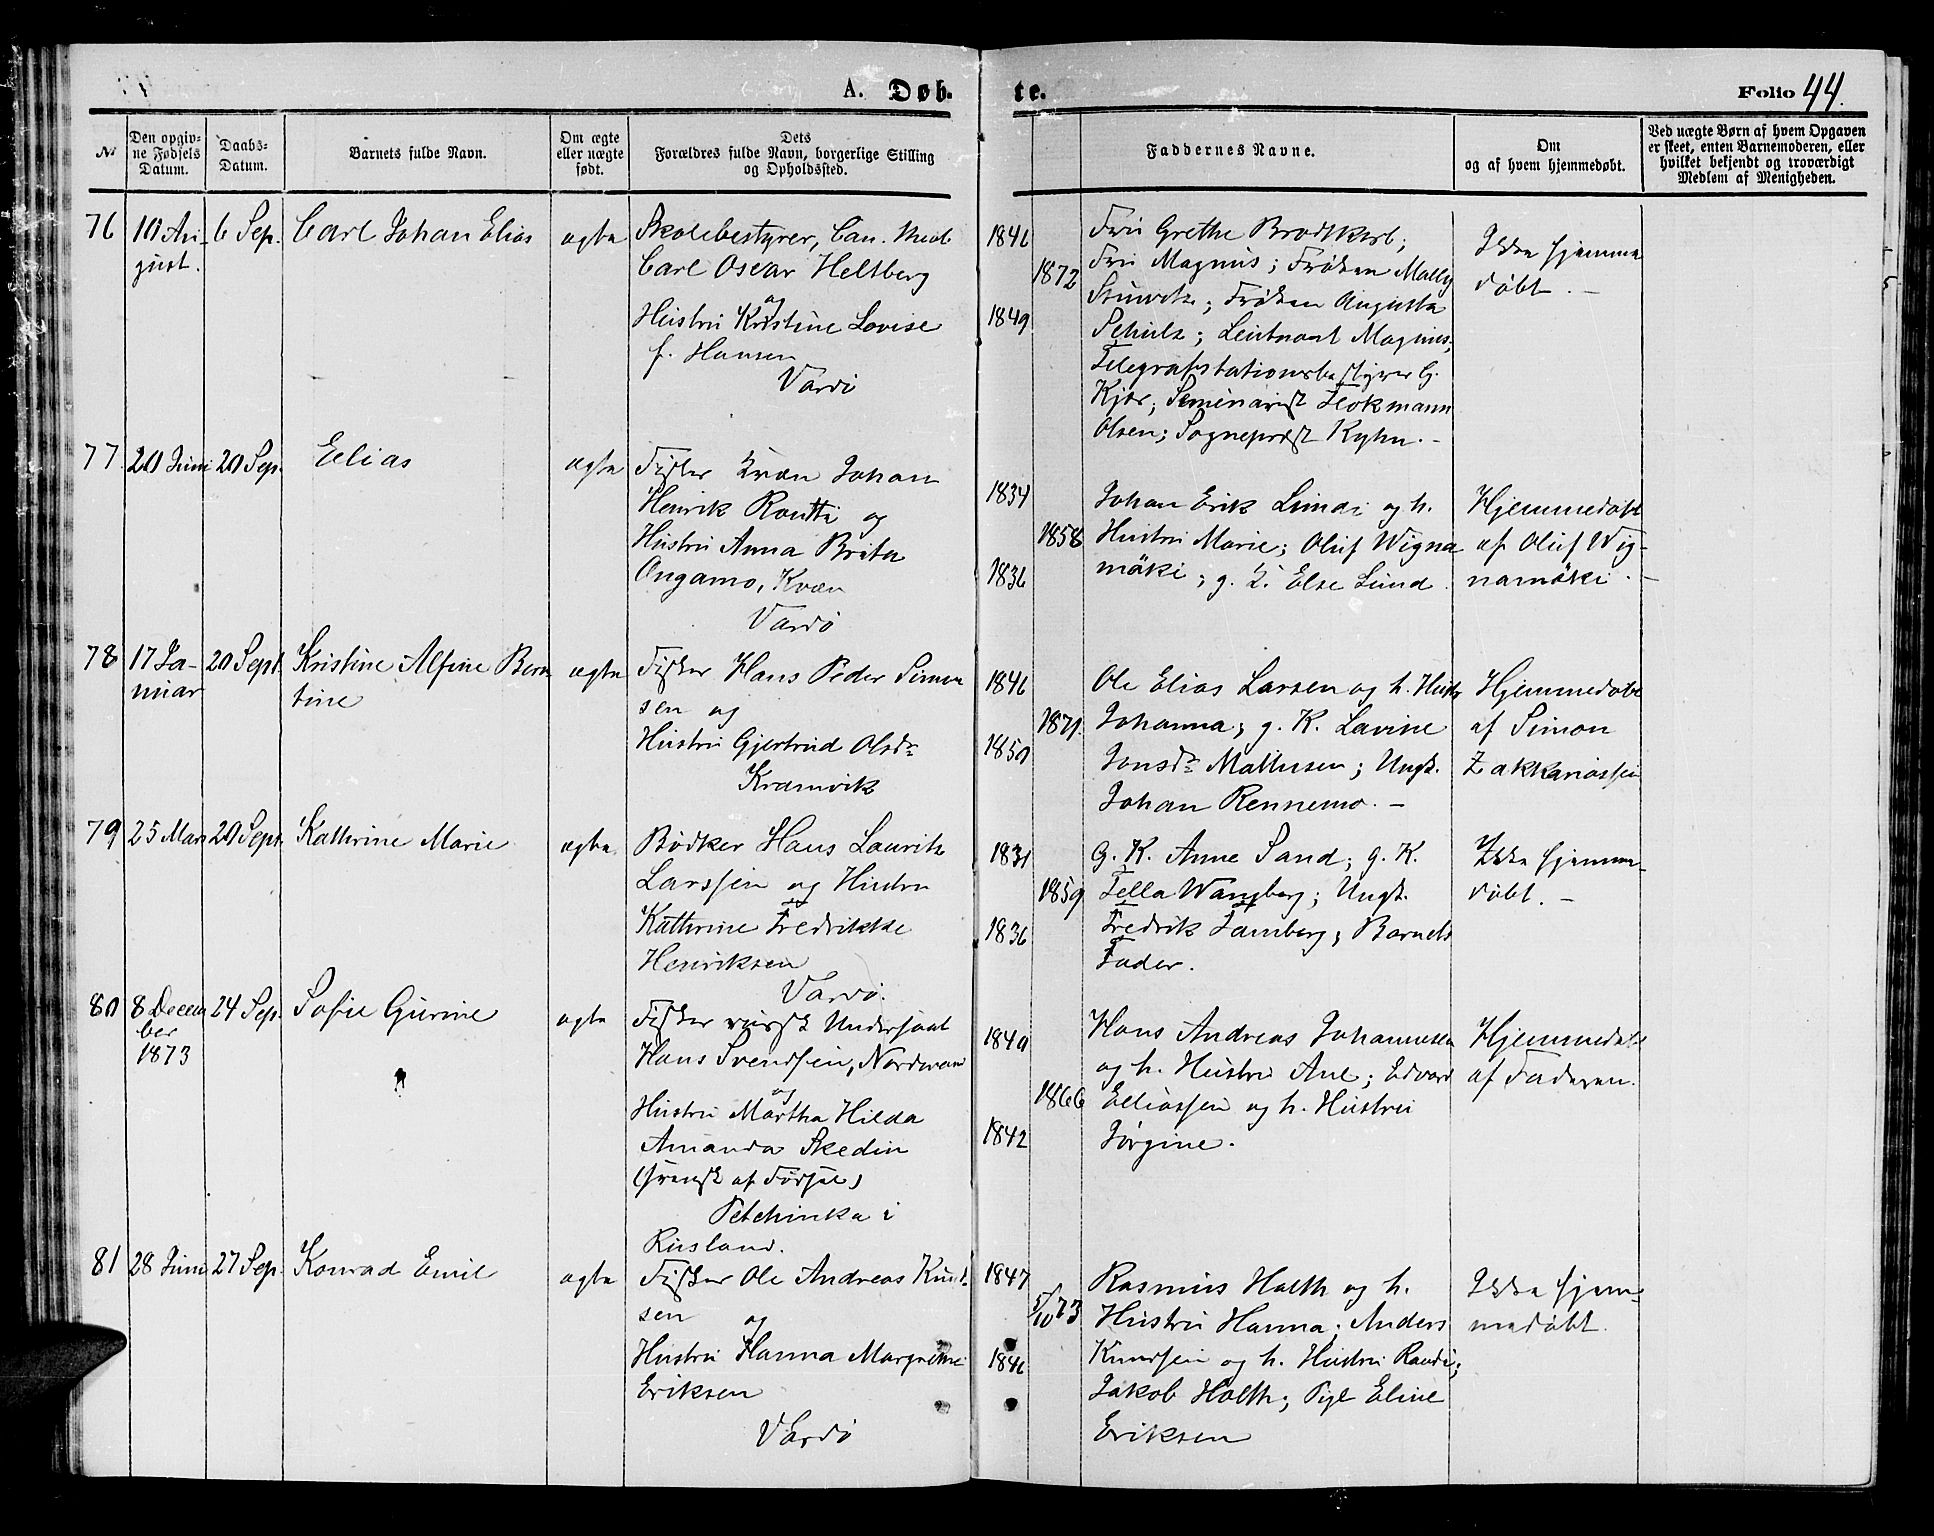 A. Døb.
te.
Folio 44.
№
Den opgiv-
ne Fødsels
Datum.
Daabs-
Datum.
Barnets fulde Navn.
Om ægte
eller uægte
født.
Dets
Forældres fulde Navn, borgerlige Stilling
og Opholdssted.
Faddernes Navne.
Om
og af hvem hjemmedøbt.
Ved uægte Børn af hvem Opgaven
er skeet, enten Barnemoderen, eller
hvilket bekjendt og troværdigt
Medlem af Menigheden.
76
10 Au-
gust.
6 Sep.
Carl Johan Elias
ægte
Skolebestyrer, Can. Med.
Carl Oscar Heltberg
og
Hustru Kristine Lovise
f. Hansen
Vardö
1846
1872
1849
Fru Grethe Brodtkorb;
Fru Magnus; Fröken Mally
Fröken Augusta
Schulz; Leutnant Magnus;
Telegrafstationsbestyrer G.
Kjær; Seminarist
Olsen; Sogneprest Kyhn. -
Ikke hjemme
döbt. -
77
20 Juni
20 Sep.
Elias
ægte
Fisker Kvæn Johan
Henrik Routti og
Hustru Anna Brita
Ongamo, Kvæn
Vardö
1834
1858
1836
Johan Erik Lund og h.
Hustru Marie; Oluf Wigna
mäki; g. K. Else Lund.
Hjemmedöbt
af Oluf Wig-
namäki. -
78
17 Ja-
nuar
20 Sept.
Kristine Alfine Bern
tine
ægte
Fisker Hans Peder Simon
sen og
Hustru Gjertrud Olsdr
Kramvik
1846
1871.
1850
Ole Elias Larsen og h. Hustr
Johanna; g. K. Lavine
Jonsdr Mathisen; Ungk.
Johan Rennemo. -
Hjemmedöbt
af Simon
Zakkariassen
79
25 Mars
20 Sept.
Kathrine Marie
ægte
Bödker Hans Lauritz
Larssen og Hustru
Kathrine Fredrikke
Henriksen
Vardö.
1831
1859
1836
G. K. Anne Sand; g. K.
Tella Wangberg; Ungk.
Fredrik Jamberg; Barnets
Fader.
Ikke hjemme-
döbt. -
80
8 Decem
ber
1873
24 Sep.
Sofie Gurine
ægte
Fisker russisk Undersaat
Hans Svendsen, Nordmand
og
Hustru Martha Hilda
Amanda Skedin
(svensk af Födsel)
Petchinka i
Rusland.
1840
1866
1842
Hans Andreas Johannesen
og h. Hustru Ane; Edvard
Eliassen og h. Hustru
Jörgine.
Hjemmedöbt
af Faderen.
81
28 Juni
27 Sep.
Konrad Emil
ægte
Fisker Ole Andreas Knud-
sen og
Hustru Hanna Margrethe
Eriksen
Vardö
1847
5/10 73
1846
Rasmus Holth og h.
Hustru Hanna; Anders
Knudsen og h. Hustru Randi;
Jakob Holth; Pige Eline
Eriksen
Ikke hjem-
medöbt.